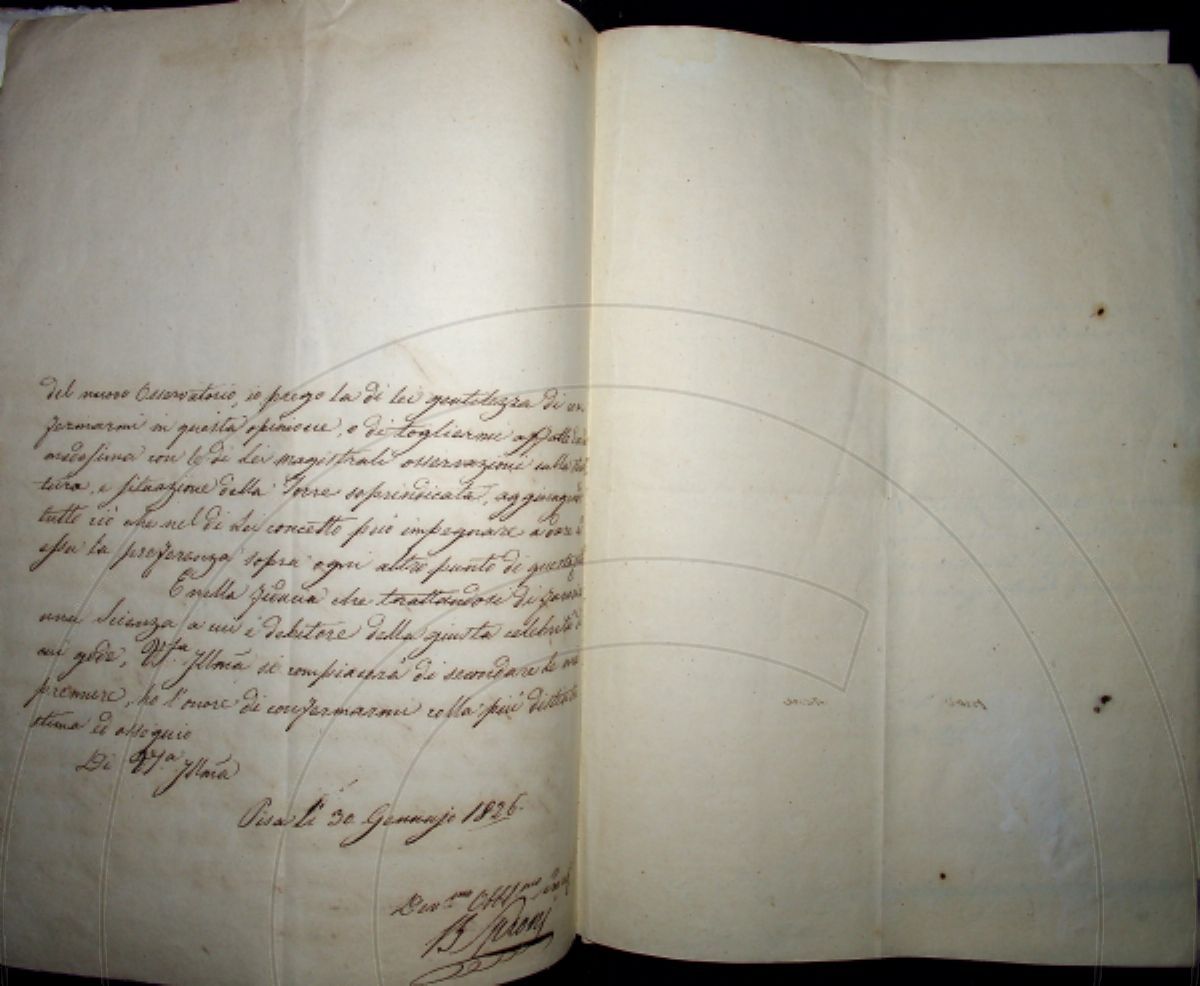 del nuovo Osservatorio, io prego la di lei gentilezza di con
fermarmi in questa opinione, o di togliermi affatto
medesima con le di Lei magistrali osservazioni sulla
tura, e situazione della Torre soprindicata, aggiungendo
tutto ciò che nel di Lei concetto può impegnare a dare
essa la preferenza sopra ogni altro punto di questa
E nella fiducia che trattandosi di
una Scienza a cui è debitore della giusta celebrità di
cui gode, V.S.a Illma si compiacerà di secondare le mie
premure, ho l'onore di confermarmi colla più distinta
stima ed ossequio
Di V.S.a Illma
Pisa li 30 Gennajo 1826.
Dev.mo Obbl.mo
B